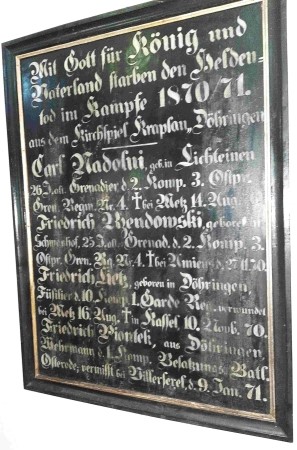 Mit Gott für König und
Vaterland starben den Helden-
tod im Kampfe 1870/71.
aus dem Kirchspiel Kraplau, Döhringen
Carl Nadolni, geb. in Lichteinen
26 J. alt. Grenadier d. 2. Komp. 3. Ostpr.
Gren. Regm. Nr. 4. † bei Metz 14. Aug.
Friedrich Wendowski, geboren in
23 J. alt, Grenad. d. 2. Komp. 3.
Ostpr. Gren. Rg. Nr. 4. † bei Amiens d. 27.11.70.
Friedrich Lietz, geboren in Döhringen,
Füsilier d. 10. Komp. 1. Garde Reg. verwundet
bei Metz 16. Aug. † in Kassel 10. Novb. 70.
Friedrich Piontek, aus Döhringen,
Wehrmann d. 1. Komp. Besatzung. Batl.
Osterode, vermißt bei Villersexel, d. 9. Jan. 71.